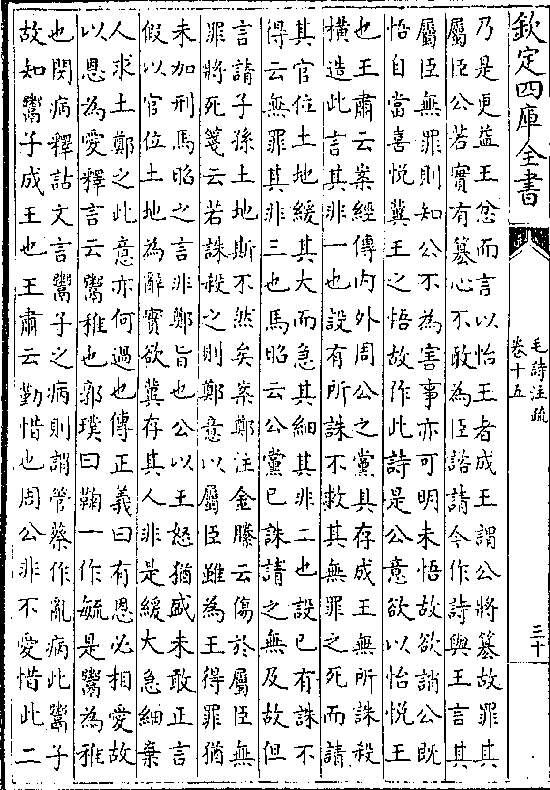 欽定四庫全書
毛詩注疏
卷十五
三十
乃是更益王忿而言以怡王者成王謂公將簒故罪其
屬臣公若實有簒心不敢為臣諮請今作詩與王言其
屬臣無罪則知公不為害事亦可明未悟故欲誚公既
悟自當喜悅冀王之悟故作此詩是公意欲以怡悅王
也王肅云案經傳内外周公之黨具存成王無所誅殺
横造此言其非一也設有所誅不救其無罪之死而請
其官位土地緩其大而急其細其非二也設已有誅不
得云無罪其非三也馬昭云公黨已誅請之無及故但
言請子孫土地斯不然矣案鄭注金縢云傷於屬臣無
罪將死箋云若誅殺之則鄭意以屬臣雖為王得罪猶
未加刑馬昭之言非鄭旨也公以王怒猶盛未敢正言
假以官位土地為辭實欲冀存其人非是緩大急細棄
人求土鄭之此意亦何過也傳正義曰有恩必相愛故
以恩為愛釋言云鬻稚也郭璞曰鞠一作毓是鬻為稚
也閔病釋詁文言鬻子之病則謂管蔡作亂病此鬻子
故知鬻子成王也王肅云勤惜也周公非不愛惜此二